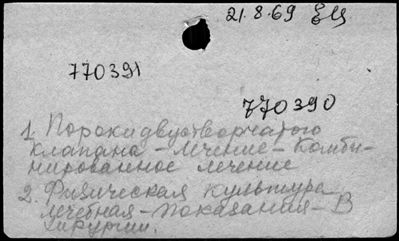 21.8.69 ЕЦ
770391
770390
1. Пороки двустворчатого
клапана - лечение - Комби-
нированное лечение
2. Физическая культура
лечебная - показания - В
хирургии.